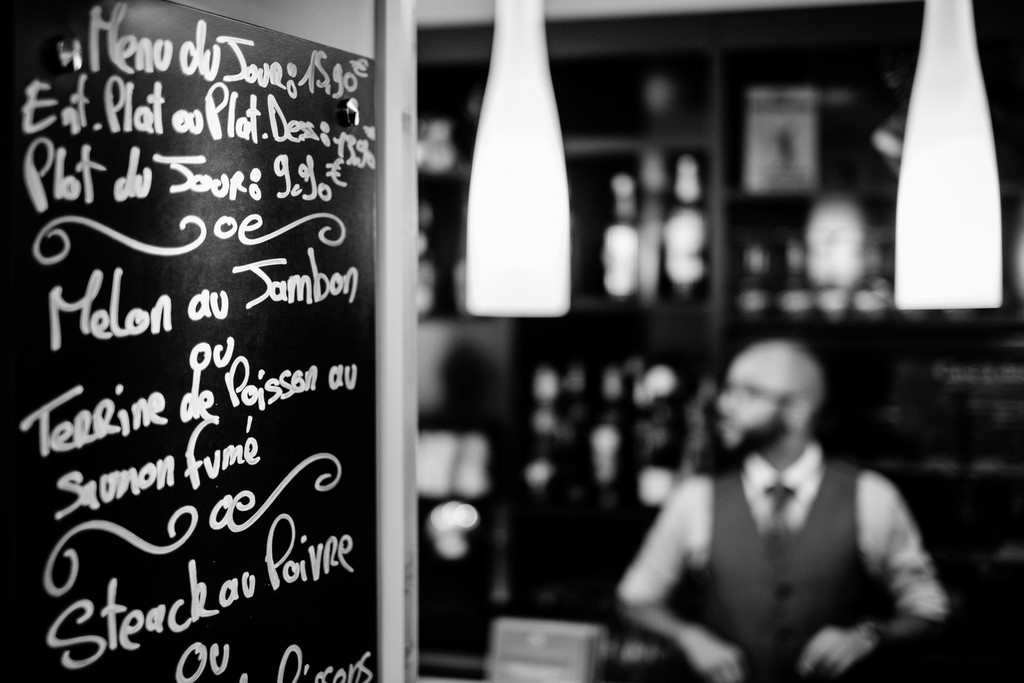 Menu du Jour: 15,90€
Ent. Plat ou Plat. Des.: 13,90
Plat du Jour: 9,90€
Melon au Jambon
ou
Terrine de Poisson au
saumon fumé
Steack au Poivre
ou